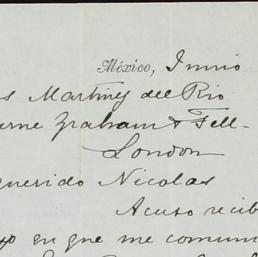 México, Junio
s Martinez del Rio
erne Graham & Fell-
London
querido Nicolas
Acuso recib
en que me comuni